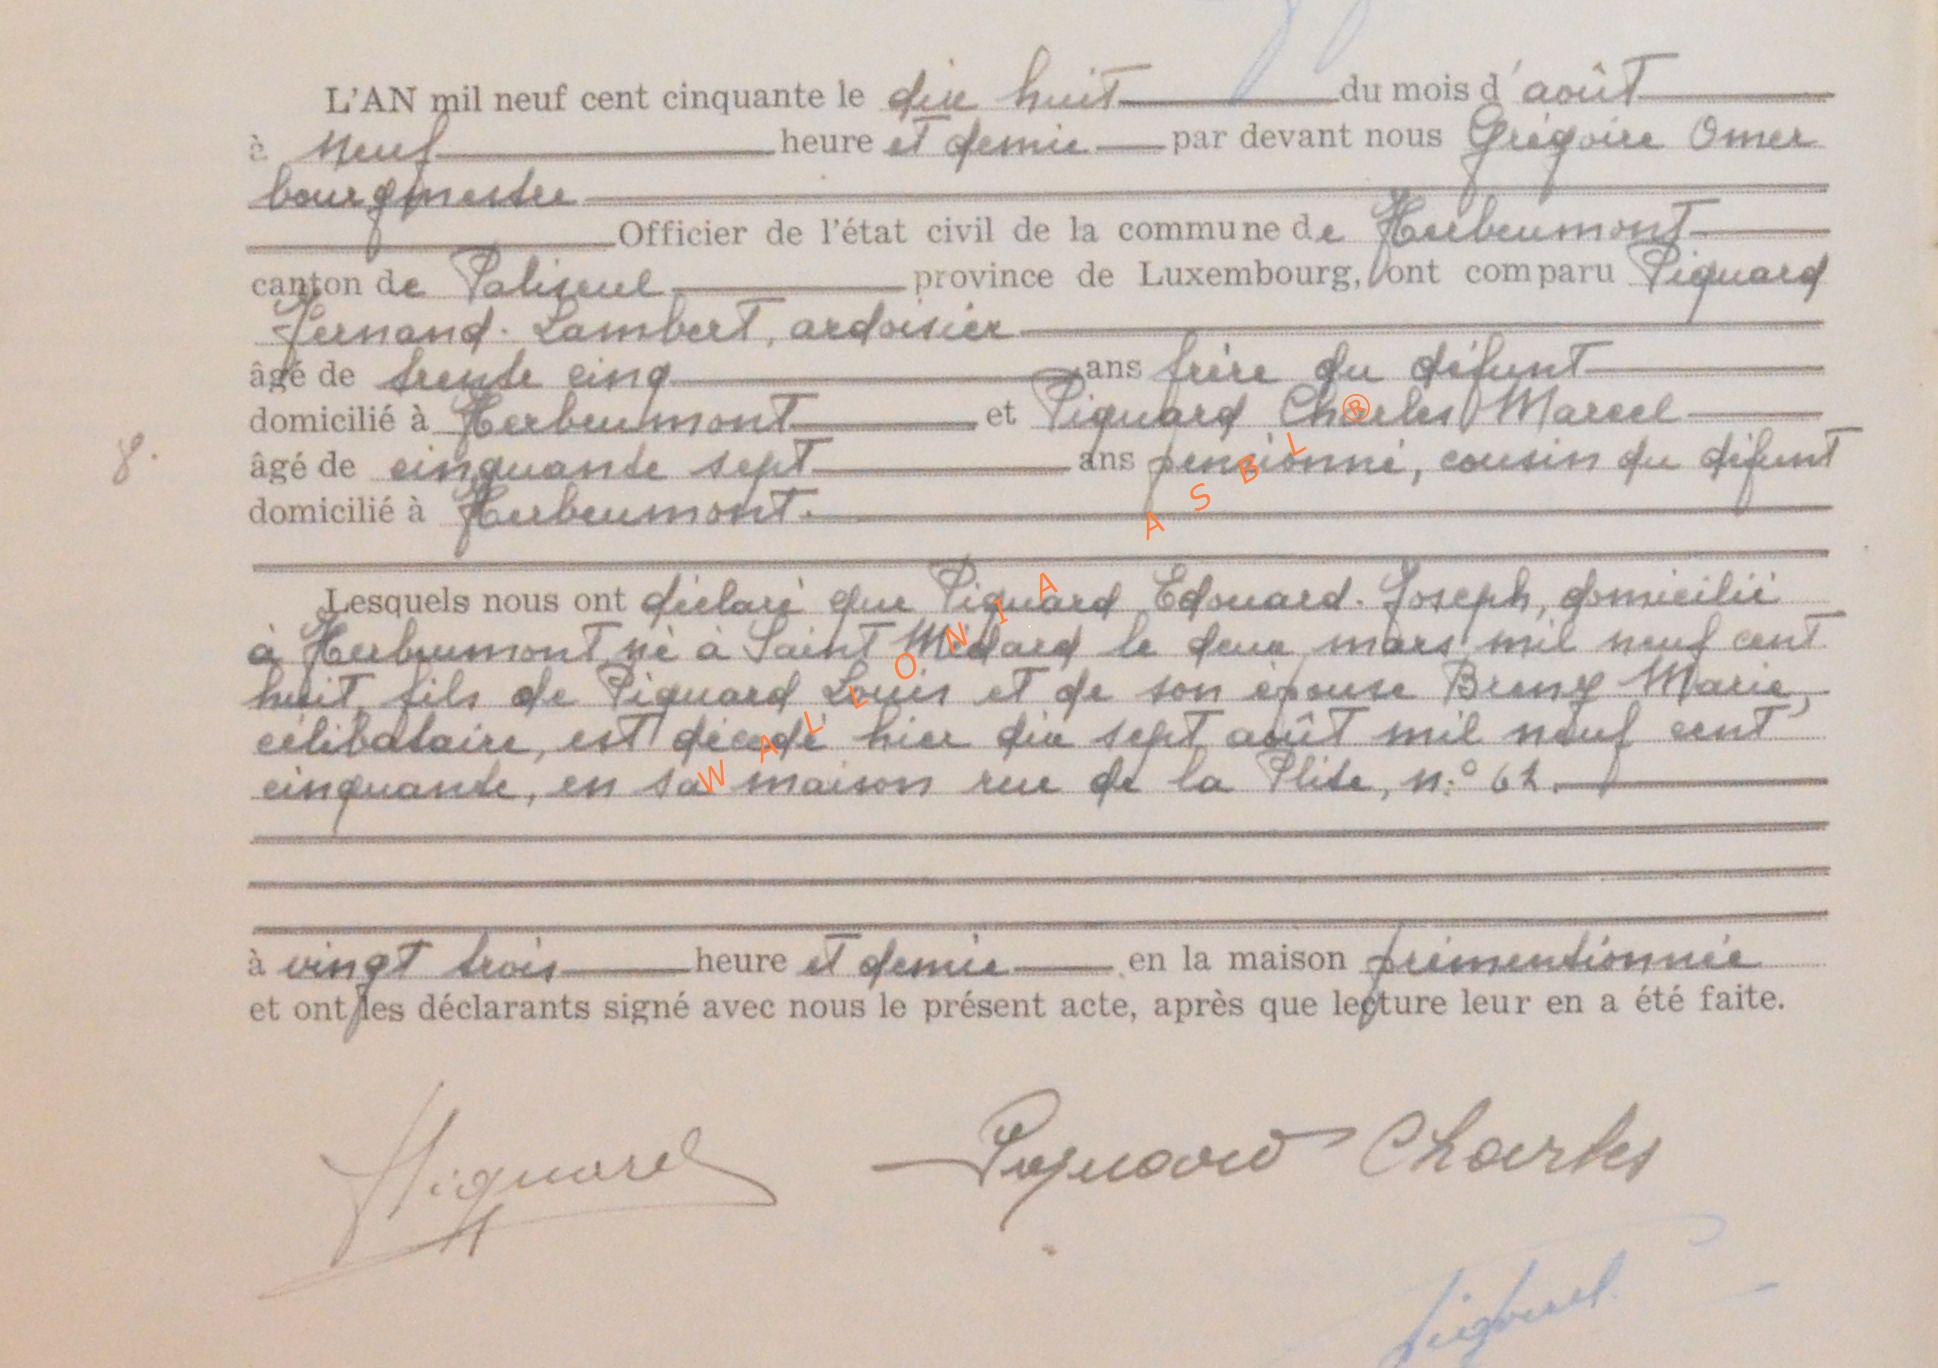 L'AN mil neuf cent cinquante le dix huit du mois d'août
à neuf heure et demie par devant nous Grégoire Omer
bourgmestre
Officier de l'état civil de la commune de Herbeumont
canton de Paliseul province de Luxembourg, ont comparu Piquard
Fernand. Lambert, ardoisier
âgé de trente cinq ans frère du défunt
domicilié à Herbeumont et Piquard Charles Marcel
8. âgé de cinquante sept ans pensionné, cousin du défunt
domicilié à Herbeumont.
Lesquels nous ont déclaré que Piquard Edouard. Joseph, domicilié
à Herbeumont né à Saint Médard le deux mars mil neuf cent
huit, fils de Piquard Louis et de son épouse Marie,
célibataire, est décédé hier dix sept août mil neuf cent
cinquante, en sa maison rue de la n:° 62.
à vingt trois heure et demie en la maison prémentionnée
et ont les déclarants signé avec nous le présent acte, après que lecture leur en a été faite.
Piquard
Piquard Charles
WALLONIA ASBL ®